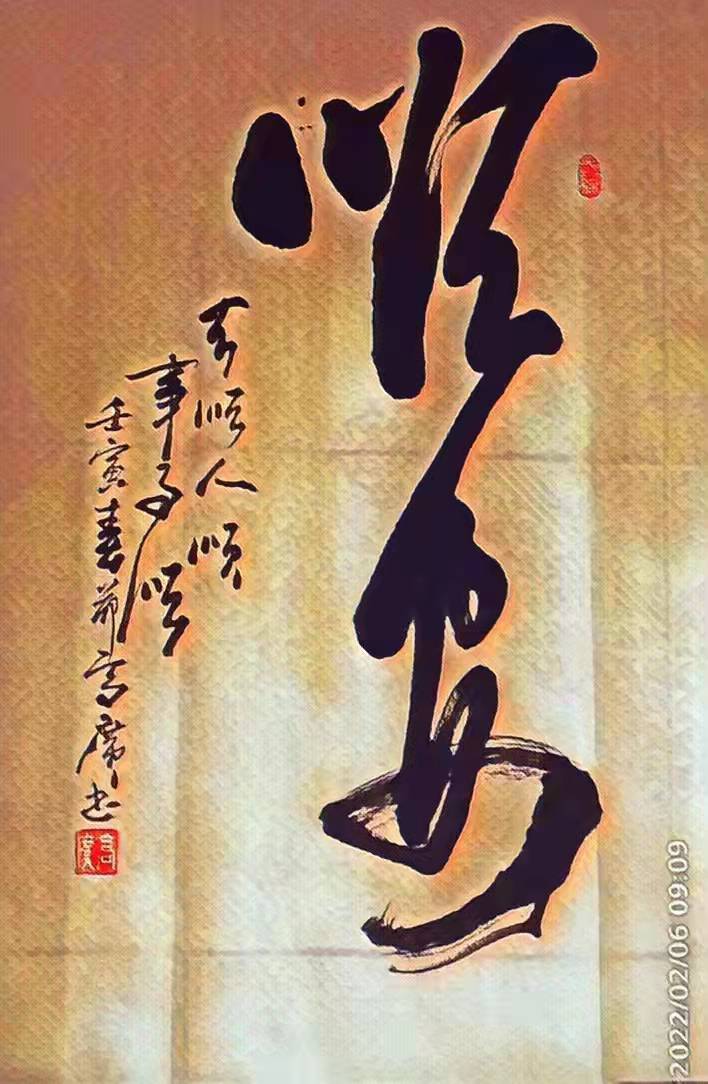 顺安
顺人顺
事事顺
壬寅春节高席书
2022/02/06 09:09